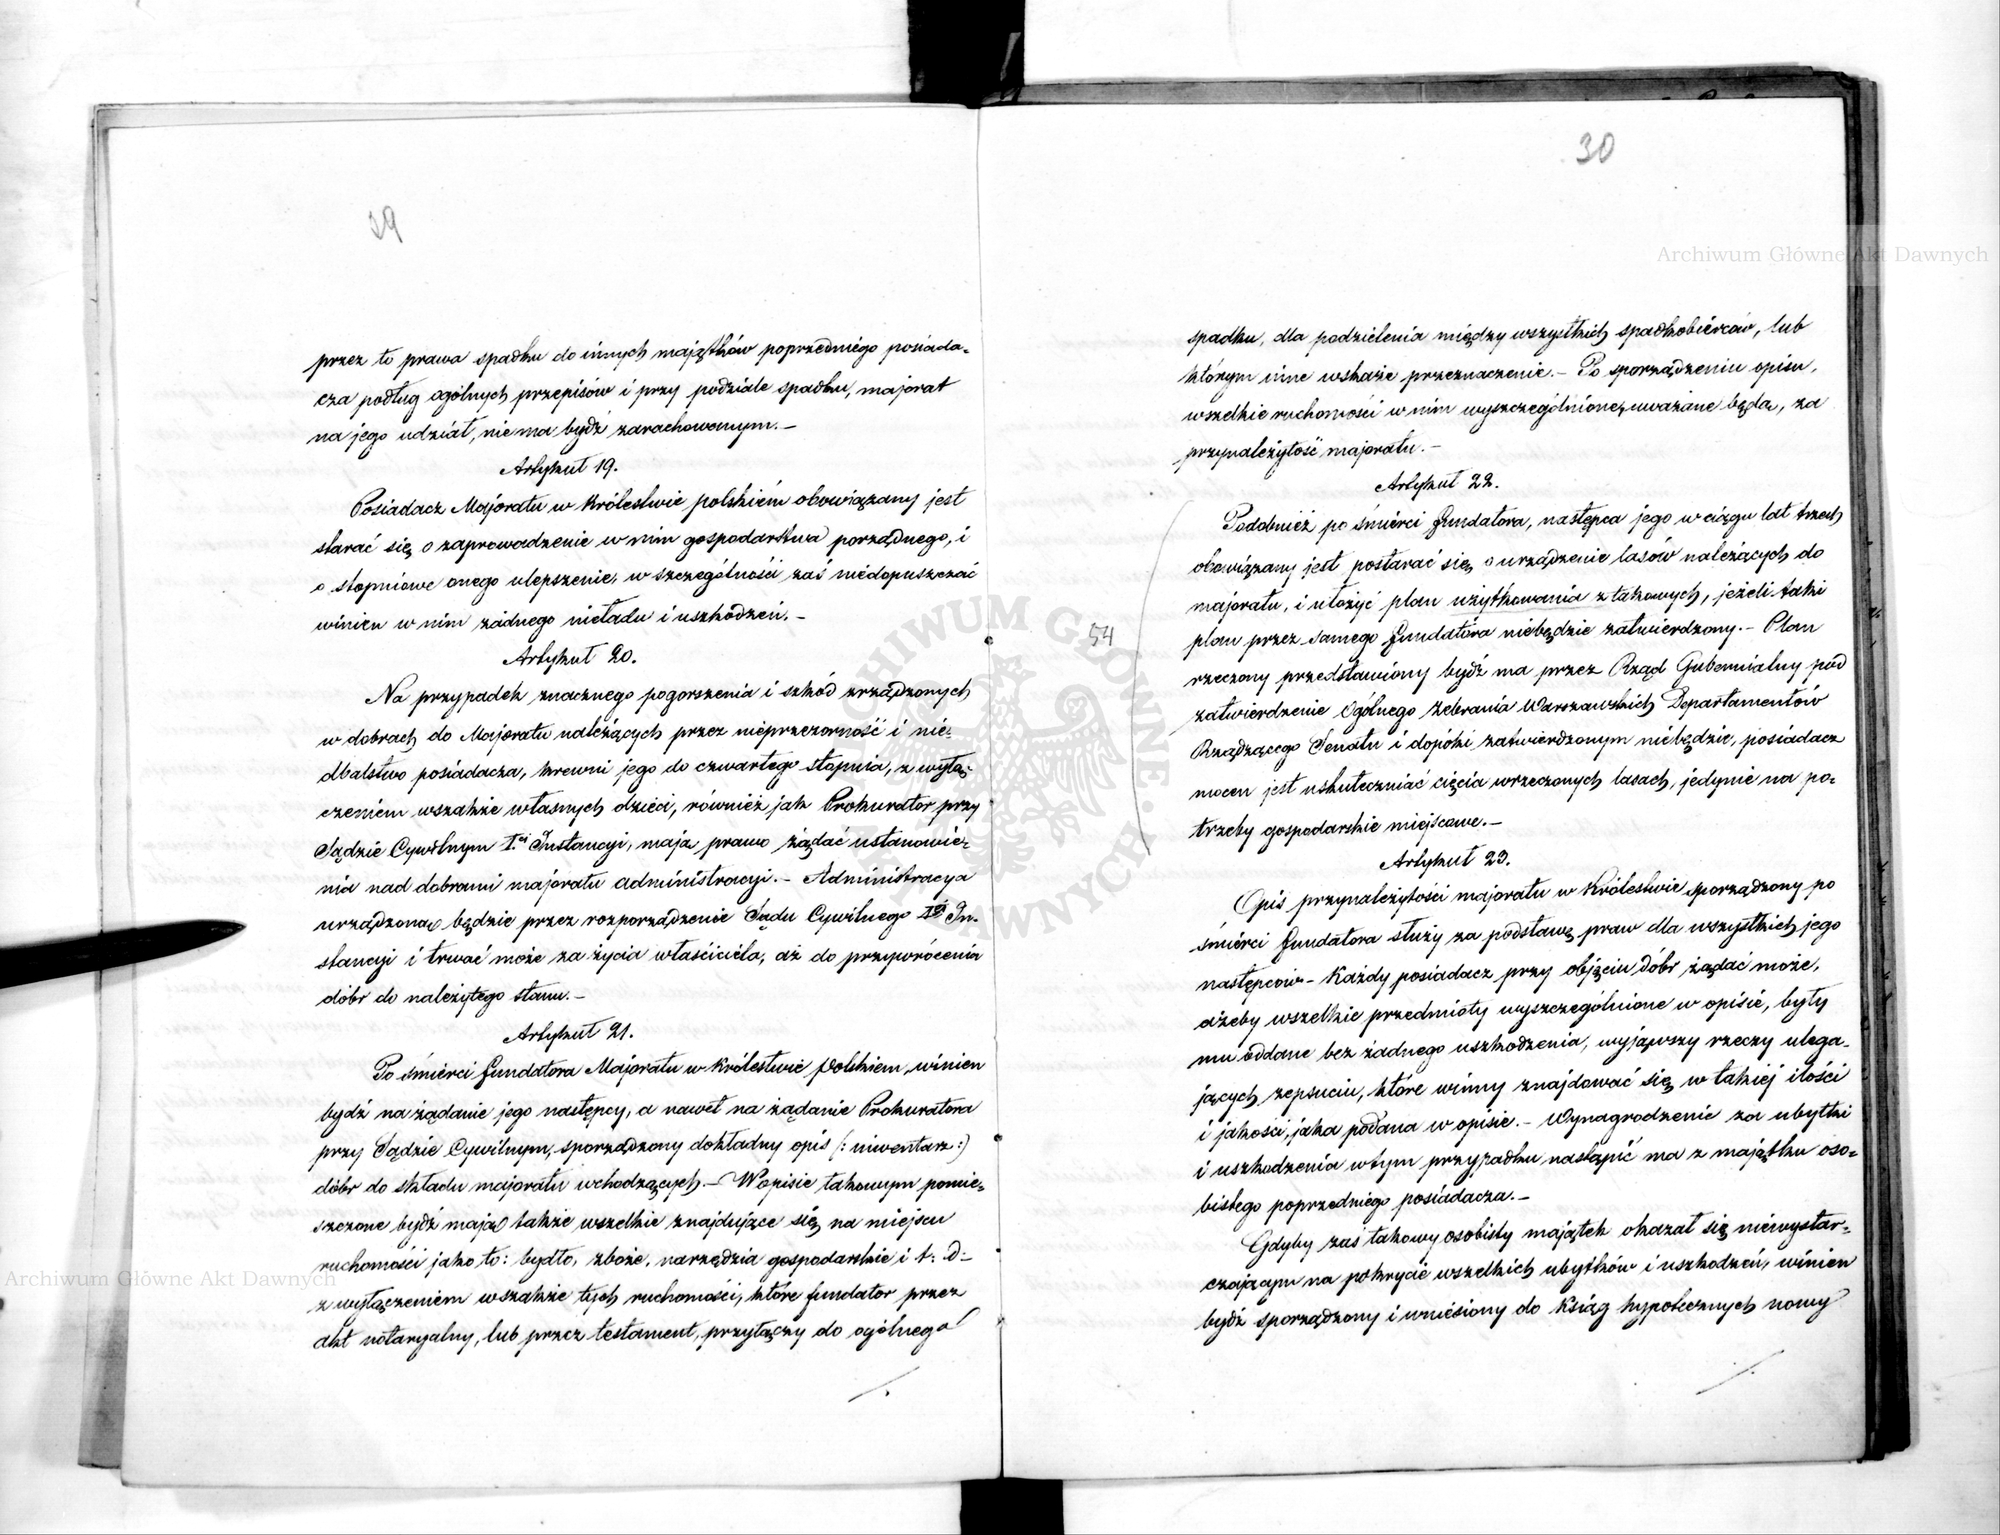 39
przez to prawa spadku do innych majątków poprzedniego posiada-
cza podług ogólnych przepisów i przy podziale spadku, majorat
na jego udział, nie ma bydź zarachowanym.-
Artykuł 19.
Posiadacz Majoratu w Królestwie polskiém obowiązany jest
starać się o zaprowadzenie w nim gospodarstwa porządnego, i
o stopniowe onego ulepszenie, w szczególności zaś niedopuszczać
winien w nim żadnego nieładu i uszkodzeń.-
Artykuł 20.
Na przypadek znacznego pogorszenia i szkód zrządzonych
w dobrach do Majoratu należących przez nieprzezorność i nie-
dbalstwo posiadacza, krewni jego do czwartego stopnia, z wyłą-
czeniem wszakże własnych dzieci, również jak Prokurator przy
Sądzie Cywilnym I.ej Instancyi, mają prawo żądać ustanowie-
nia nad dobrami majoratu administracyi.- Administracya
urządzoną będzie przez rozporządzenie Sądu Cywilnego Iej In-
stancyi i trwać może za życia właściciela, aż do przywrócenia
dóbr do należytego stanu.-
Artykuł 21.
Po śmierci fundatora Majoratu w Królestwie Polskiem, winien
bydź na żądanie jego następcy, a nawet na żądanie Prokuratora
przy Sądzie Cywilnym, sporządzony dokładny opis (: inwentarz :)
dóbr do składu majoratu wchodzących.- W opisie takowym pomie-
szczone bydź mają także wszelkie znajdujące się na miejscu
ruchomości jako to: bydło, zboże, narzędzia gospodarskie i t. d-
z wyłączeniem wszakże tych ruchomości, które fundator przez
akt notaryalny, lub przez testament, przyłączy do ogólnego
/.
30
spadku, dla podzielenia między wszystkich spadkobierców, lub
którym inne wskaże przeznaczenie.- Po sporządzeniu opisu,
wszelkie ruchomości w nim wyszczególnione, uważane będą, za
przynależytość majoratu.-
Artykuł 22.
Podobnież po śmierci fundatora, następca jego w ciągu lat trzech
obowiązany jest postarać się o urządzenie lasów należących do
majoratu, i ułożyć plan użytkowania z takowych, jeżeli taki
plan przez samego fundatora niebędzie zatwierdzony.- Plan
54
rzeczony przedstawiony bydź ma przez Rząd Gubernialny pod
zatwierdzenie Ogólnego Zebrania Warszawskich Departamentów
Rządzącego Senatu i dopóki zatwierdzonym niebędzie, posiadacz
mocen jest uskuteczniać cięcia w rzeczonych lasach, jedynie na po-
trzeby gospodarskie miejscowe.-
Artykuł 23.
Opis przynależytości majoratu w Królestwie sporządzony po
śmierci fundatora służy za podstawę praw dla wszystkich jego
następców- Każdy posiadacz przy objęciu dóbr żądać może,
ażeby wszelkie przedmioty wyszczególnione w opisie, były
mu oddane bez żadnego uszkodzenia, wyjąwszy rzeczy ulega-
jących zepsuciu, które winny znajdować się w takiej ilości
i jakości, jaka podana w opisie.- Wynagrodzenie za ubytki
i uszkodzenia w tym przypadku nastąpić ma z majątku oso-
bistego poprzedniego posiadacza.-
Gdyby zaś takowy osobisty majątek okazał się niewystar-
czającym na pokrycie wszelkich ubytków i uszkodzeń, winien
bydź sporządzony i wniesiony do Ksiąg hypotecznych nowy
/.
Archiwum Główne Akt Dawnych
Archiwum Główne Akt Dawnych
ARCHIWUM GŁÓWNE AKT DAWNYCH